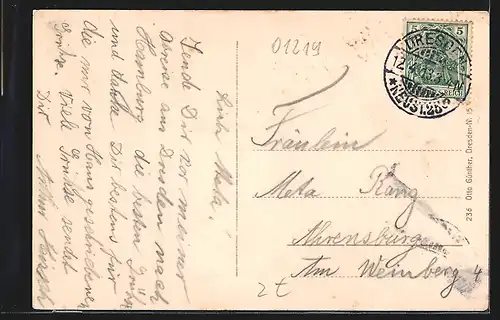 Liebe Meta!
Sende Dir vor meiner
Abreise aus Dresden nach
Hamburg die besten Grüße
und danke Dir bestens für
die mir vom Haus geschriebenen
Grüße. Viele Grüße sendet
Dir Arthur
01219
5 5
DRESDEN
12
*NEUST.25*
Fräulein
Meta Rang
Ahrensburg
Am Weinberg 4
2t
236 Otto Günther, Dresden-N. 15